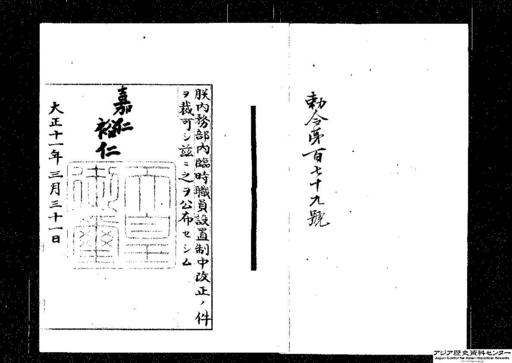 勅令第百七十九號
朕内務部内臨時職員設置制中改正ノ件
ヲ裁可シ茲ニ之ヲ公布セシム
嘉仁
裕仁
天皇御璽
大正十一年三月三十一日
アジア歴史資料センター
Japan Center for Asian Historical Records